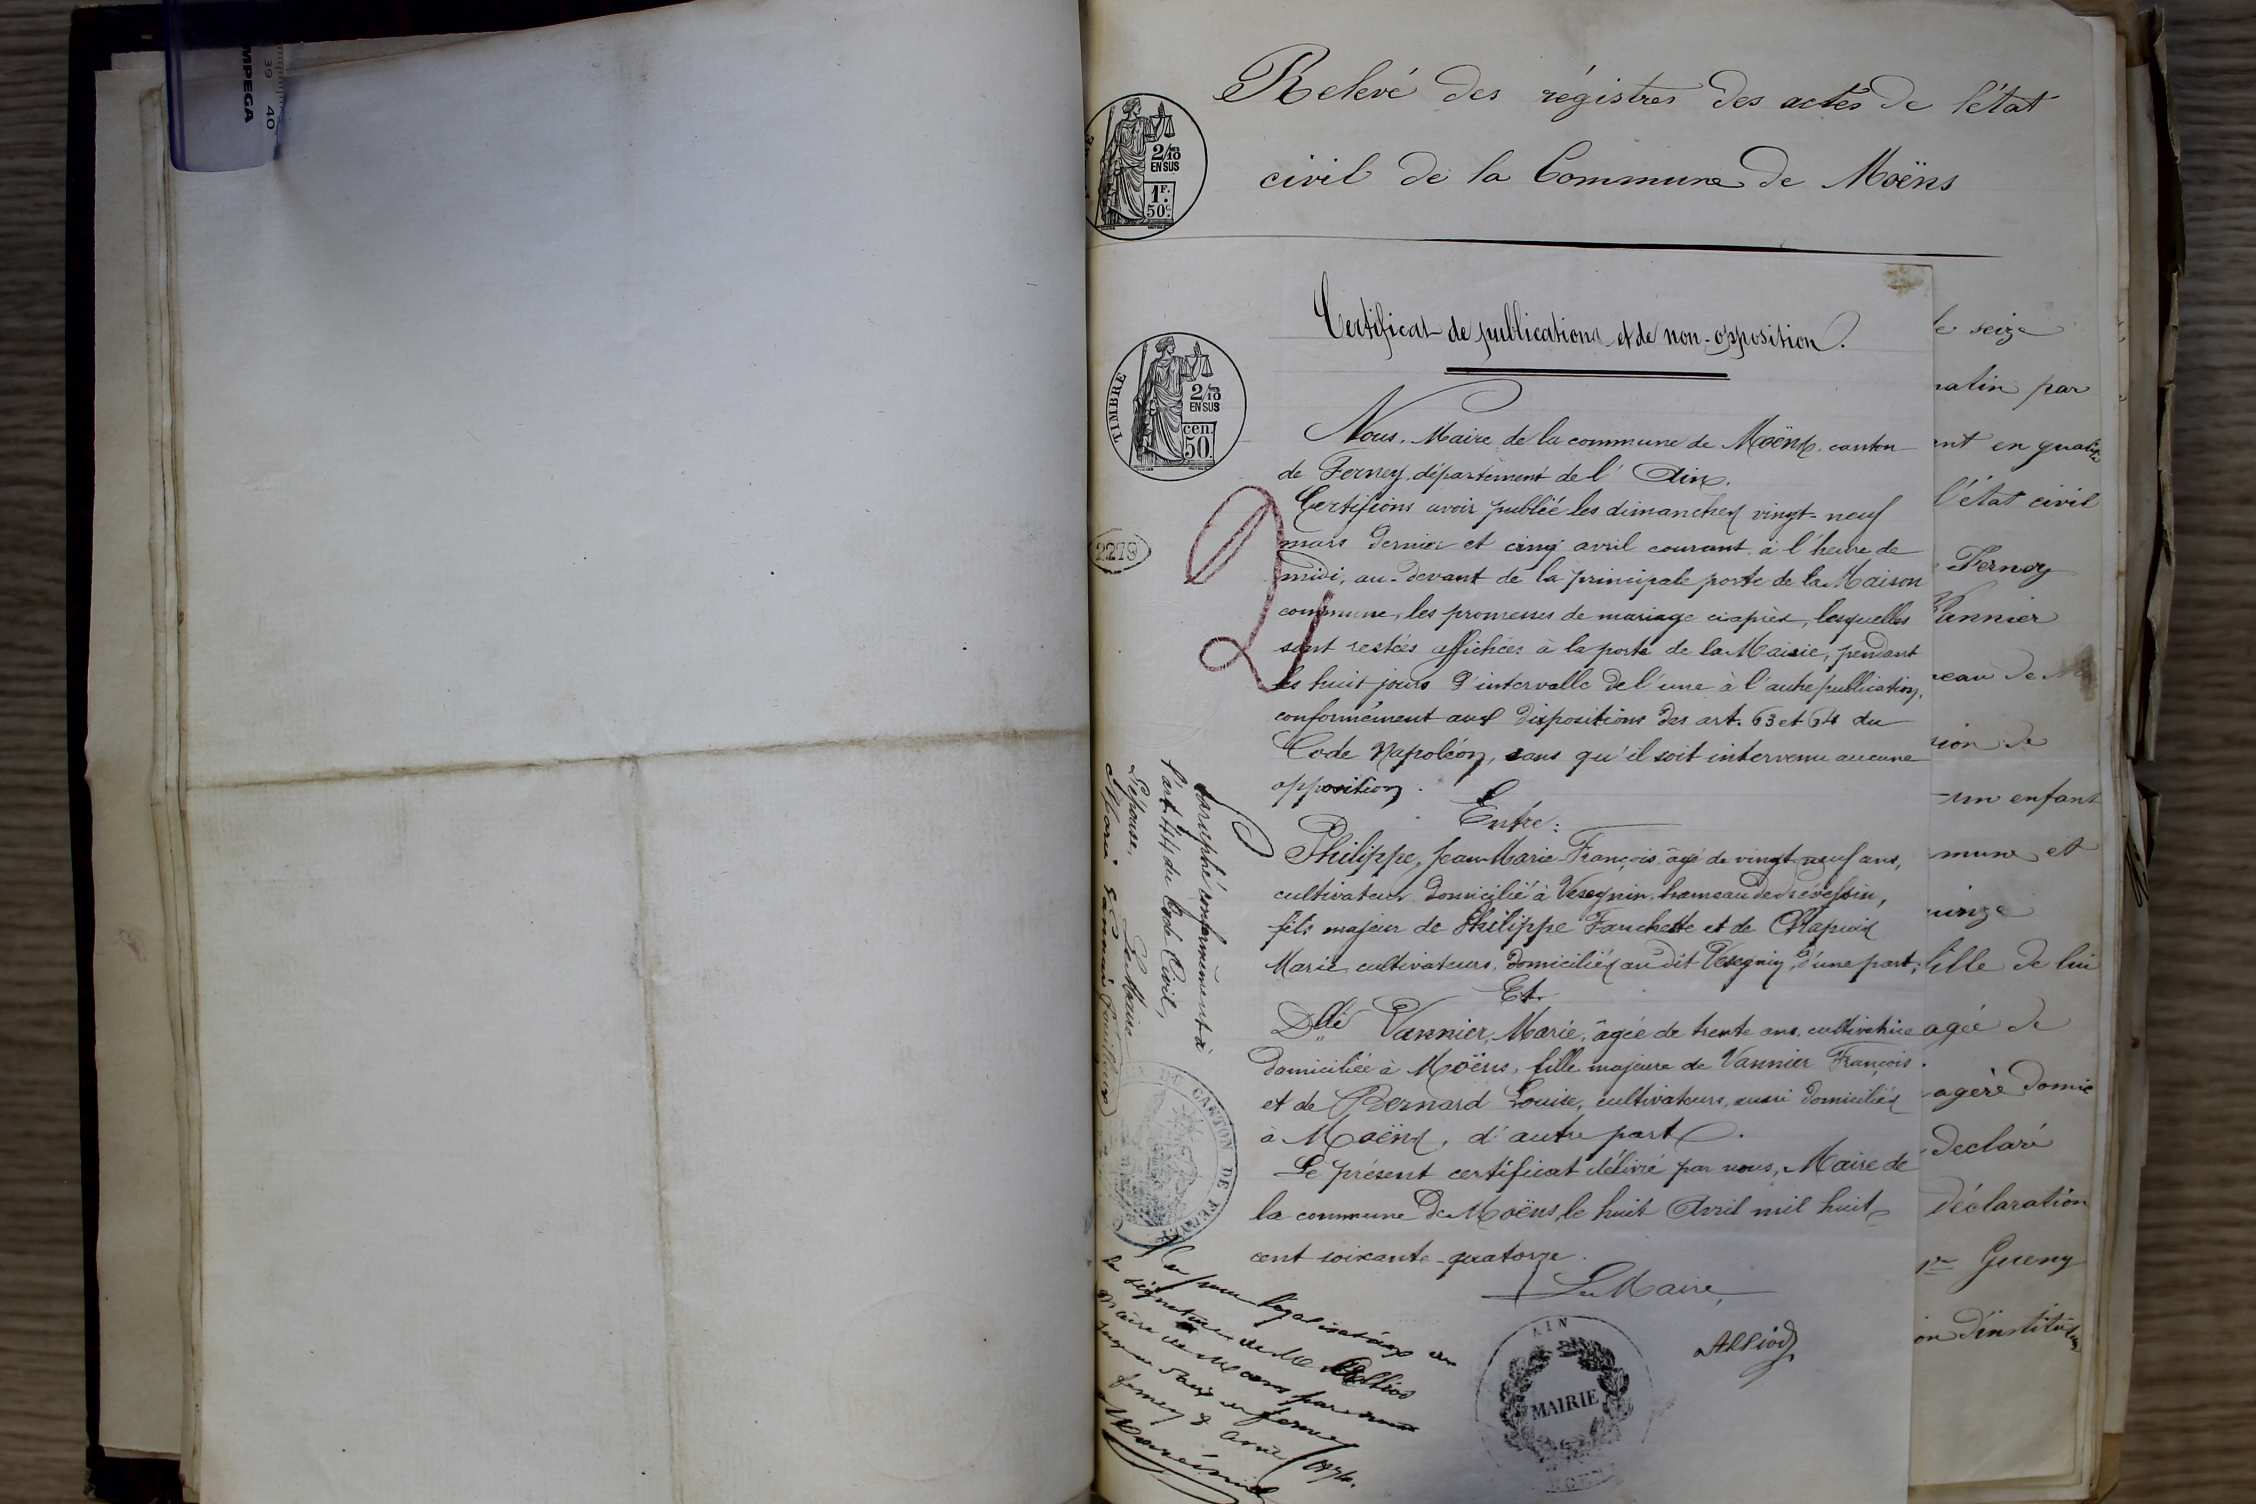 MPEGA
39 40
Relevé des régistres des actes de l'état
civil de la Commune de Moëns
2/10
EN SUS
1F.
50c.
Certificat de publications et de non-opposition.
TIMBRE
2/10
EN SUS
cen.
50.
2279
Nous, Maire de la commune de Moëns, canton
de Ferney, département de l'Ain.
Certifions avoir publié les dimanches vingt-neuf
mars dernier et cinq avril courant à l'heure de
midi, au-devant de la principale porte de la Maison
commune, les promesses de mariage ci-après, lesquelles
sont restées affichées à la porte de la Mairie, pendant
les huit jours d'intervalle de l'une à l'autre publication,
conformément aux dispositions des art. 63 et 64 du
Code Napoléon, sans qu'il soit intervenu aucune
opposition.
Entre:
Philippe, Jean-Marie-François, âgé de vingt-neuf ans,
cultivateur domicilié à Vesegnin, hameau de Prévessin,
fils majeur de Philippe Fanchette et de Chapuis
Marie cultivateurs, domiciliés au dit Vesegnin, d'une part,
Et
Dlle Vannier, Marie, âgée de trente ans, cultivatrice
domiciliée à Moëns, fille majeure de Vannier François
et de Bernard Louise, cultivateurs, aussi domiciliés
à Moëns, d'autre part.
Le présent certificat délivré par nous, Maire de
la commune de Moëns, le huit Avril mil huit
cent soixante-quatorze.
Le Maire,
AIN
MAIRIE
le seize
matin par
ent en qualité
l'état civil
Ferney
Vannier
eau de
ion de
un enfant
mune et
uinze
fille de lui
agée de
agère domic
declaré
déclaration
Gueny
on d'institut
Paraphé conformément à
l'art. 44 du Code Civil,
L'épouse, Le Maire
Marie Vannier
CANTON DE
Vu pour légalisation de
la signature de M
Maire de Moens par nous
Juge de Paix de Ferney
Ferney 8 avril 1874.